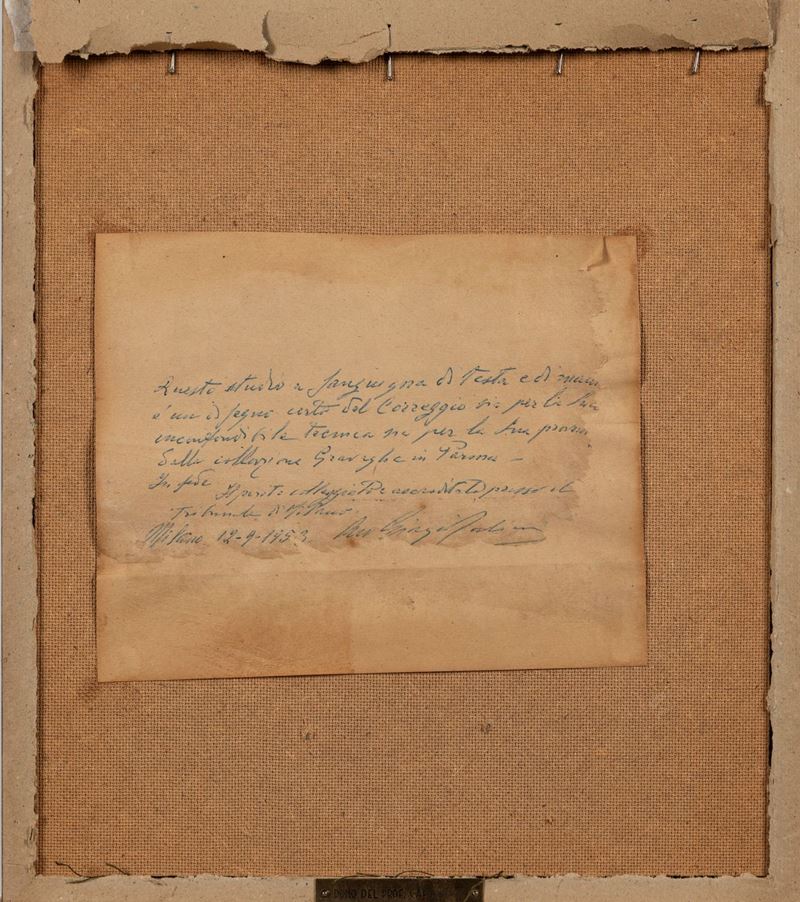 Questo studio a sanguigna di testa e di mano
è un disegno certo del Correggio sia per la sua
inconfondibile tecnica sia per la sua proven
dalla collezione in Parma –
In fede Il perito presso il
Tribunale di Milano
Milano 12-9-1953
DONO DEL PROF.